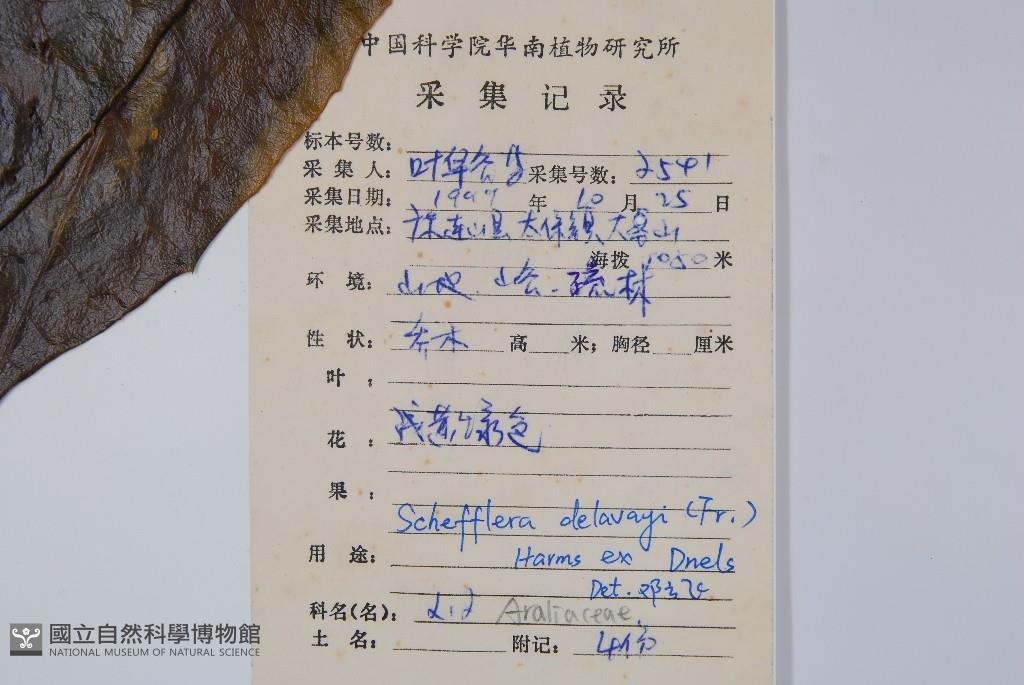 中国科学院华南植物研究所
采集记录
标本号数:
采集人: 叶华谷 采集号数: 2541
采集日期: 1997 年 10 月 25 日
采集地点: 连山县太保镇大雾山
海拨 1050 米
环境: 山地 山谷. 疏林
性状: 乔木 高 米; 胸径 厘米
叶:
花: 浅黄绿色
果:
Schefflera delavayi (Fr.)
Harms ex Dnels
用途:
Det. 邓云飞
科名(名): 212 Araliaceae
土名: 附记: 4份
國立自然科學博物館
NATIONAL MUSEUM OF NATURAL SCIENCE